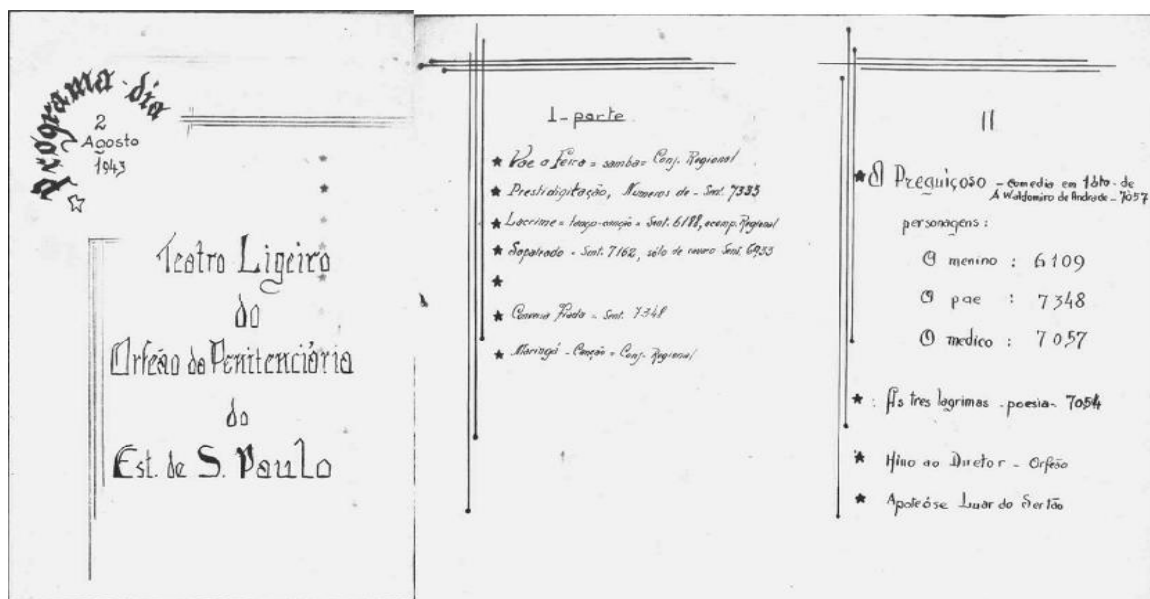 Programa dia
2
Agosto
1943
Teatro Ligeiro
do
Orfeão da Penitenciária
do
Est. de S. Paulo
I - parte
Vae a Feira = samba = Conj. Regional
Prestidigitação, Numeros de - Sent. 7335
Lacrime = tango-canção = Sent. 6188, acomp. Regional
Sapateado - Sent. 7162, sólo de Sent. 6933
Conversa Fiada - Sent. 7348
Maringá - Canção = Conj. Regional
II
O Preguiçoso - comedia em 1 áto - de
A Waldomiro de Andrade - 7057
personagens :
O menino : 6109
O pae : 7348
O medico : 7057
: As tres lagrimas - poesia - 7054
Hino ao Diretor - Orfeão
Apoteóse Luar do Sertão